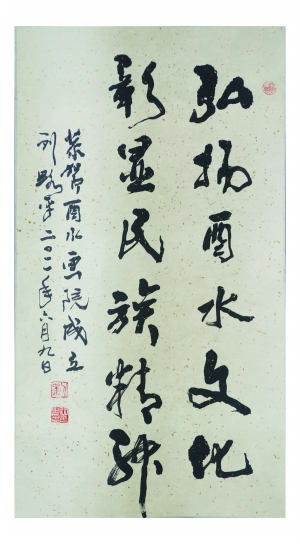 弘扬酉水文化
彰显民族精神
恭贺酉水画院成立
刘路平二〇一一年六月九日